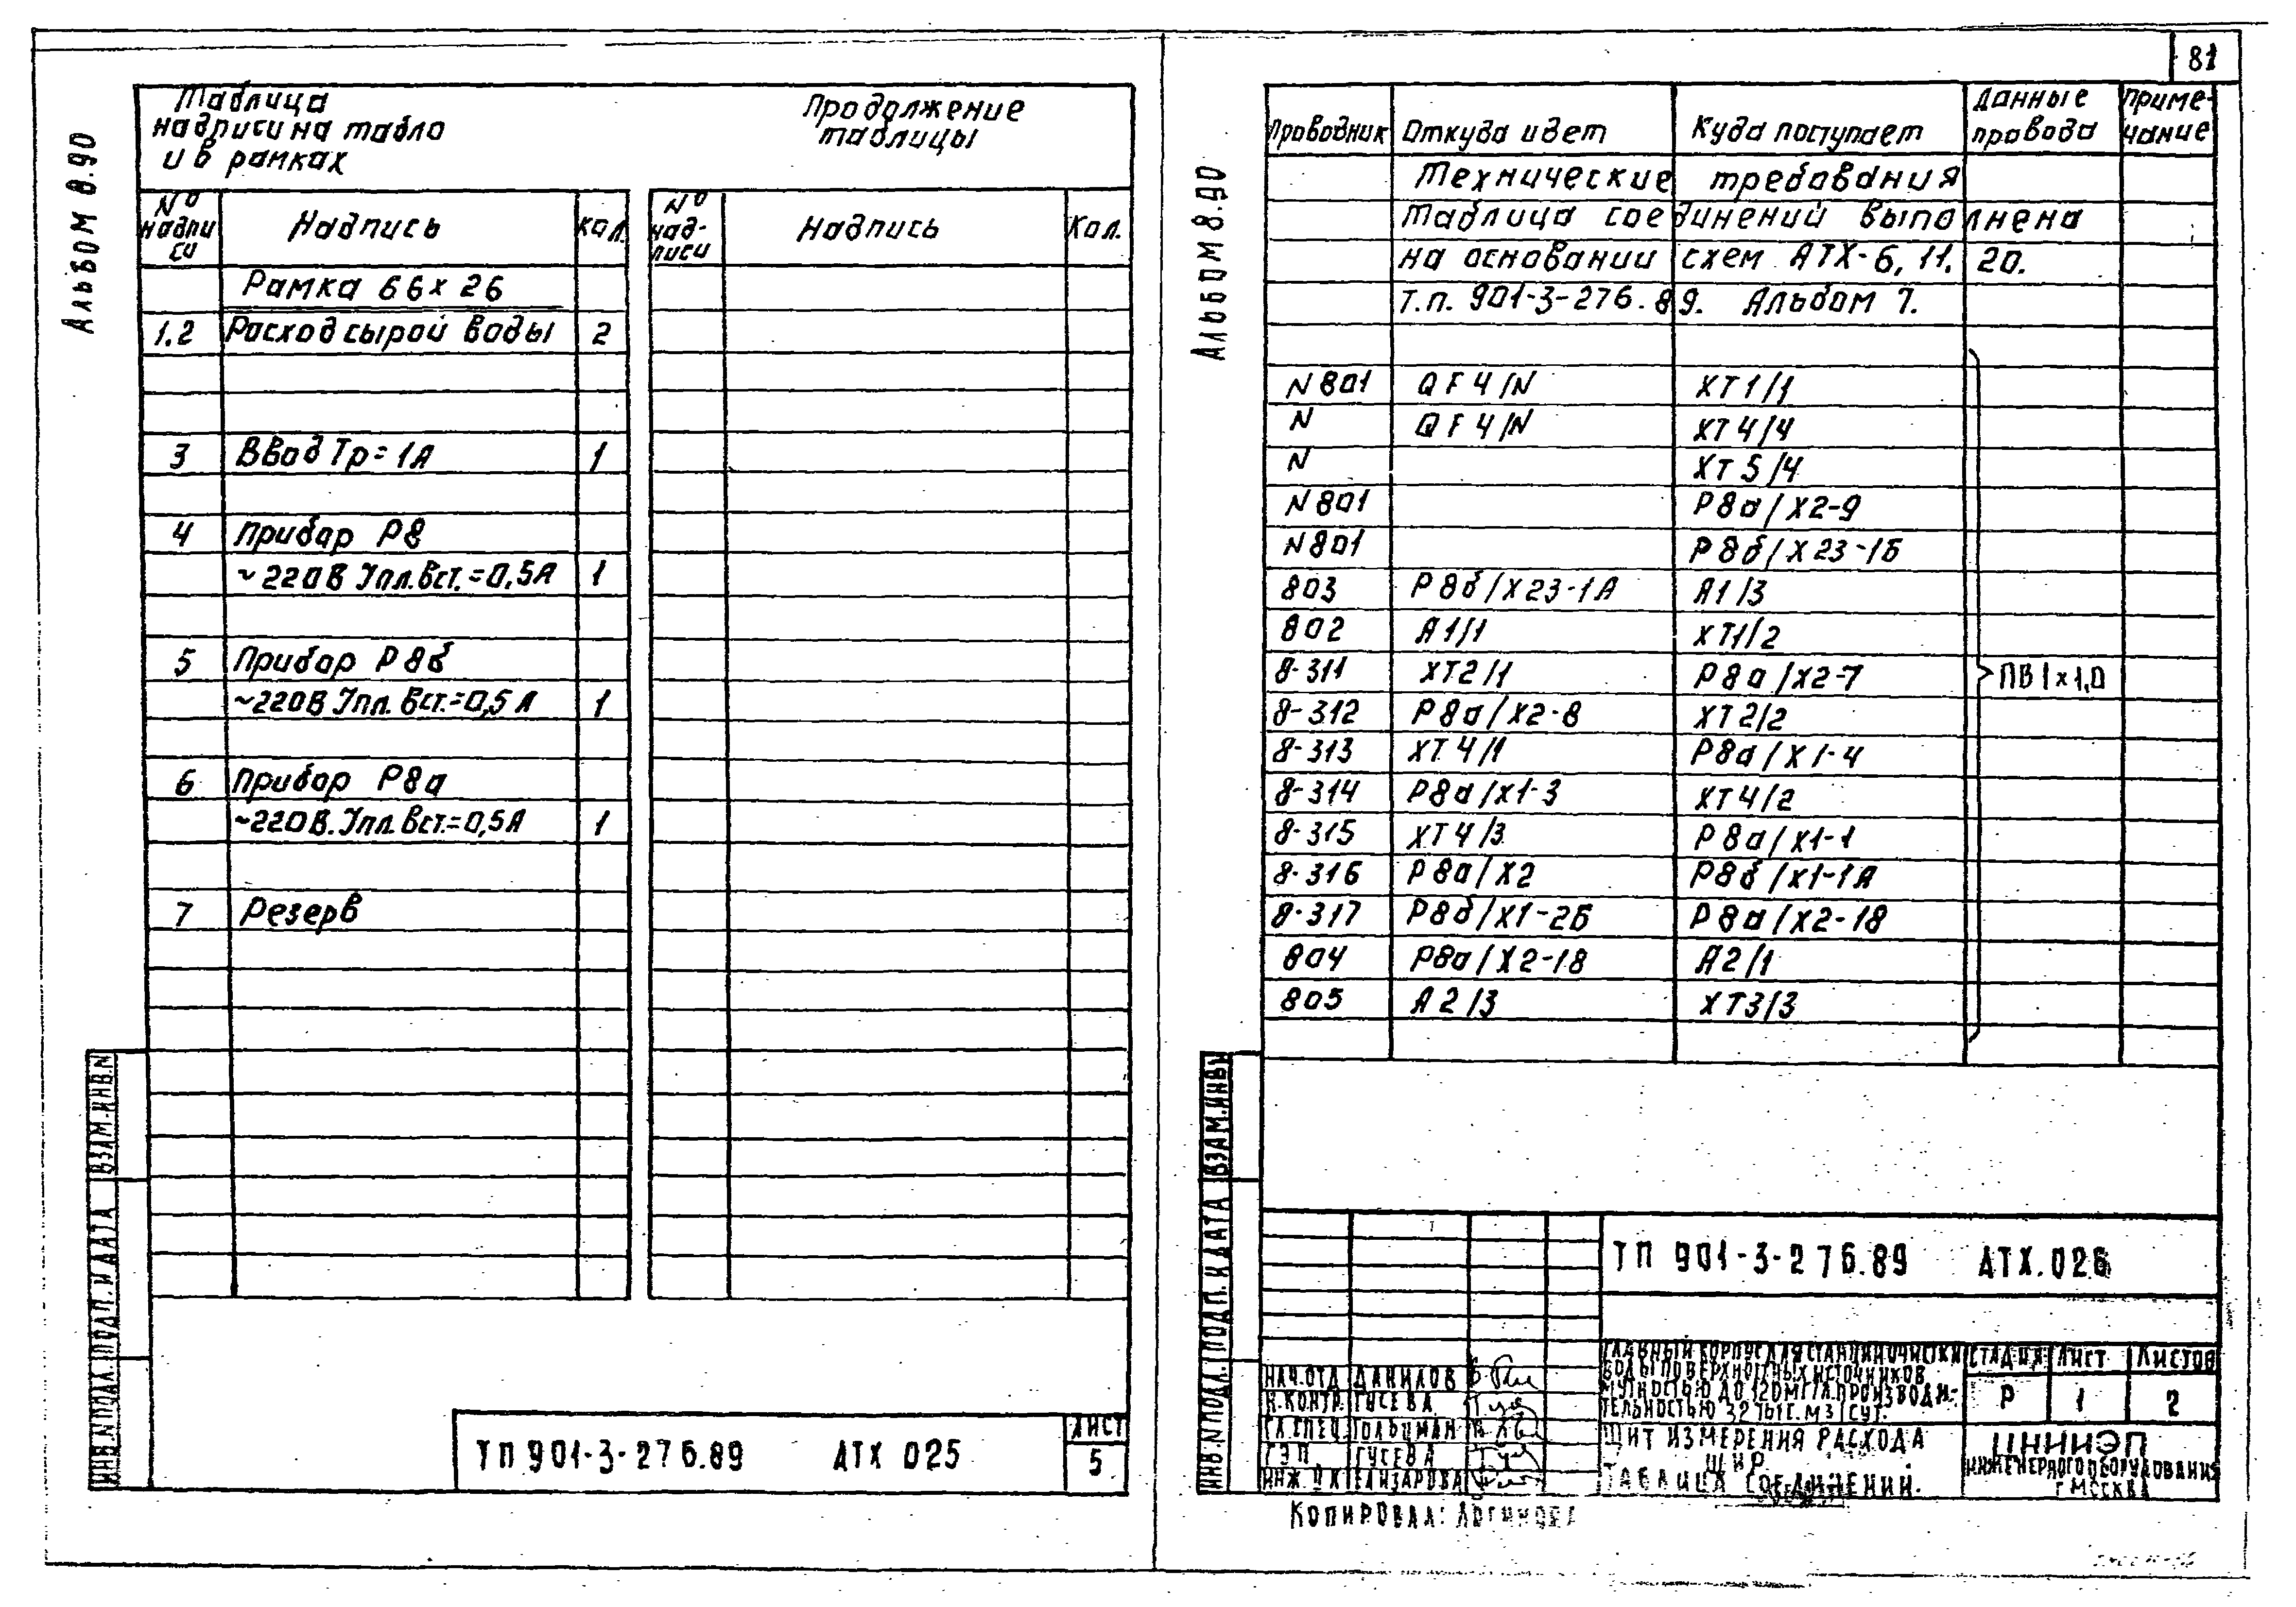 81
Альбом 8.90
Таблица
надписи на табло
и в рамках
Продолжение
таблицы
№ надпи си | Надпись | Кол. | № над- писи | Надпись | Кол.
Рамка 66×26
1.2 Расход сырой воды 2
3 Ввод Тр=1А 1
4 Прибор Р8
~220В Iпл.вст.=0,5А 1
5 Прибор Р8б
~220В Iпл. Вст.=0,5А 1
6 Прибор Р8а
~220В. Iпл.Вст.=0,5А 1
7 Резерв
ВЗАМ.ИНВ.N
ПОДП. И ДАТА
ИНВ.N ПОДЛ.
ТП 901-3-276.89 АТХ 025
ЛИСТ
5
Альбом 8.90
Проводник | Откуда идет | Куда поступает | Данные провода | Приме- чание
Технические требования
Таблица соединений выполнена
на основании схем АТХ-6, 11, 20.
Т.п. 901-3-276.89. Альбом 7.
N801 QF4/N XT1/1
N QF4/N XT4/4
N XT5/4
N801 Р8а/X2-9
N801 Р8б/X23-1Б
803 Р8б/X23-1А А1/3
802 А1/1 XT1/2
8-311 XT2/1 Р8а/X2-7 ПВ1×1,0
8-312 Р8а/X2-8 XT2/2
8-313 XT4/1 Р8а/X1-4
8-314 Р8а/X1-3 XT4/2
8-315 XT4/3 Р8а/X1-1
8-316 Р8а/X2 Р8б/X1-1А
8-317 Р8б/X1-2Б Р8а/X2-18
804 Р8а/X2-18 А2/1
805 А2/3 XT3/3
ВЗАМ.ИНВN
ПОДП. И ДАТА
ИНВ.N ПОДЛ.
ТП 901-3-276.89 АТХ.026
НАЧ.ОТД ДАНИЛОВ
Н.КОНТР. ГУСЕВА
ГЛ.СПЕЦ ГОЛЬЦМАН
ГЭП ГУСЕВА
ИНЖ. II К ЕЛИЗАРОВА
ГЛАВНЫЙ КОРПУС ДЛЯ СТАНЦИИ ОЧИСКИ
ВОДЫ ПОВЕРХНОСТНЫХ ИСТОЧНИКОВ
МУТНОСТЬЮ ДО 120МГ/Л.ПРОИЗВОДИ-
ТЕЛЬНОСТЬЮ 32 ТЫС. М3/СУТ.
СТАДИЯ ЛИСТ ЛИСТОВ
Р 1 2
ЩИТ ИЗМЕРЕНИЯ РАСХОДА
ЩИР.
ТАБЛИЦА СОЕДИНЕНИЙ.
ЦНИИЭП
ИНЖЕНЕРНОГО ОБОРУДОВАНИЯ
Г.МОСКВА
КОПИРОВАЛ: ЛОГИНОВА